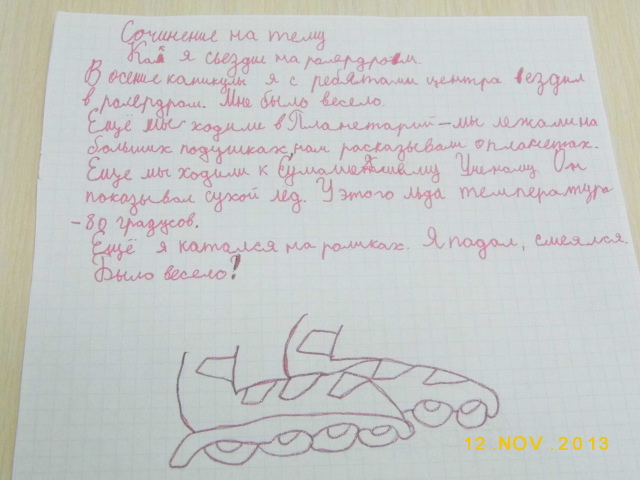 Сочинение на тему
Как я съездил на ролердром.
В осение каникулы я с ребятами центра ездил
в ролердром. Мне было весело.
Ещё мы ходили в Планетарий – мы лежали на
больших подушках, нам расказывали о планетах.
Еще мы ходили к Сумашедшему Ученому Он
показывал сухой лед. У этого льда температура
- 80 градусов.
Ещё я катался на роликах. Я падал, смеялся.
Было весело!
12.NOV.2013